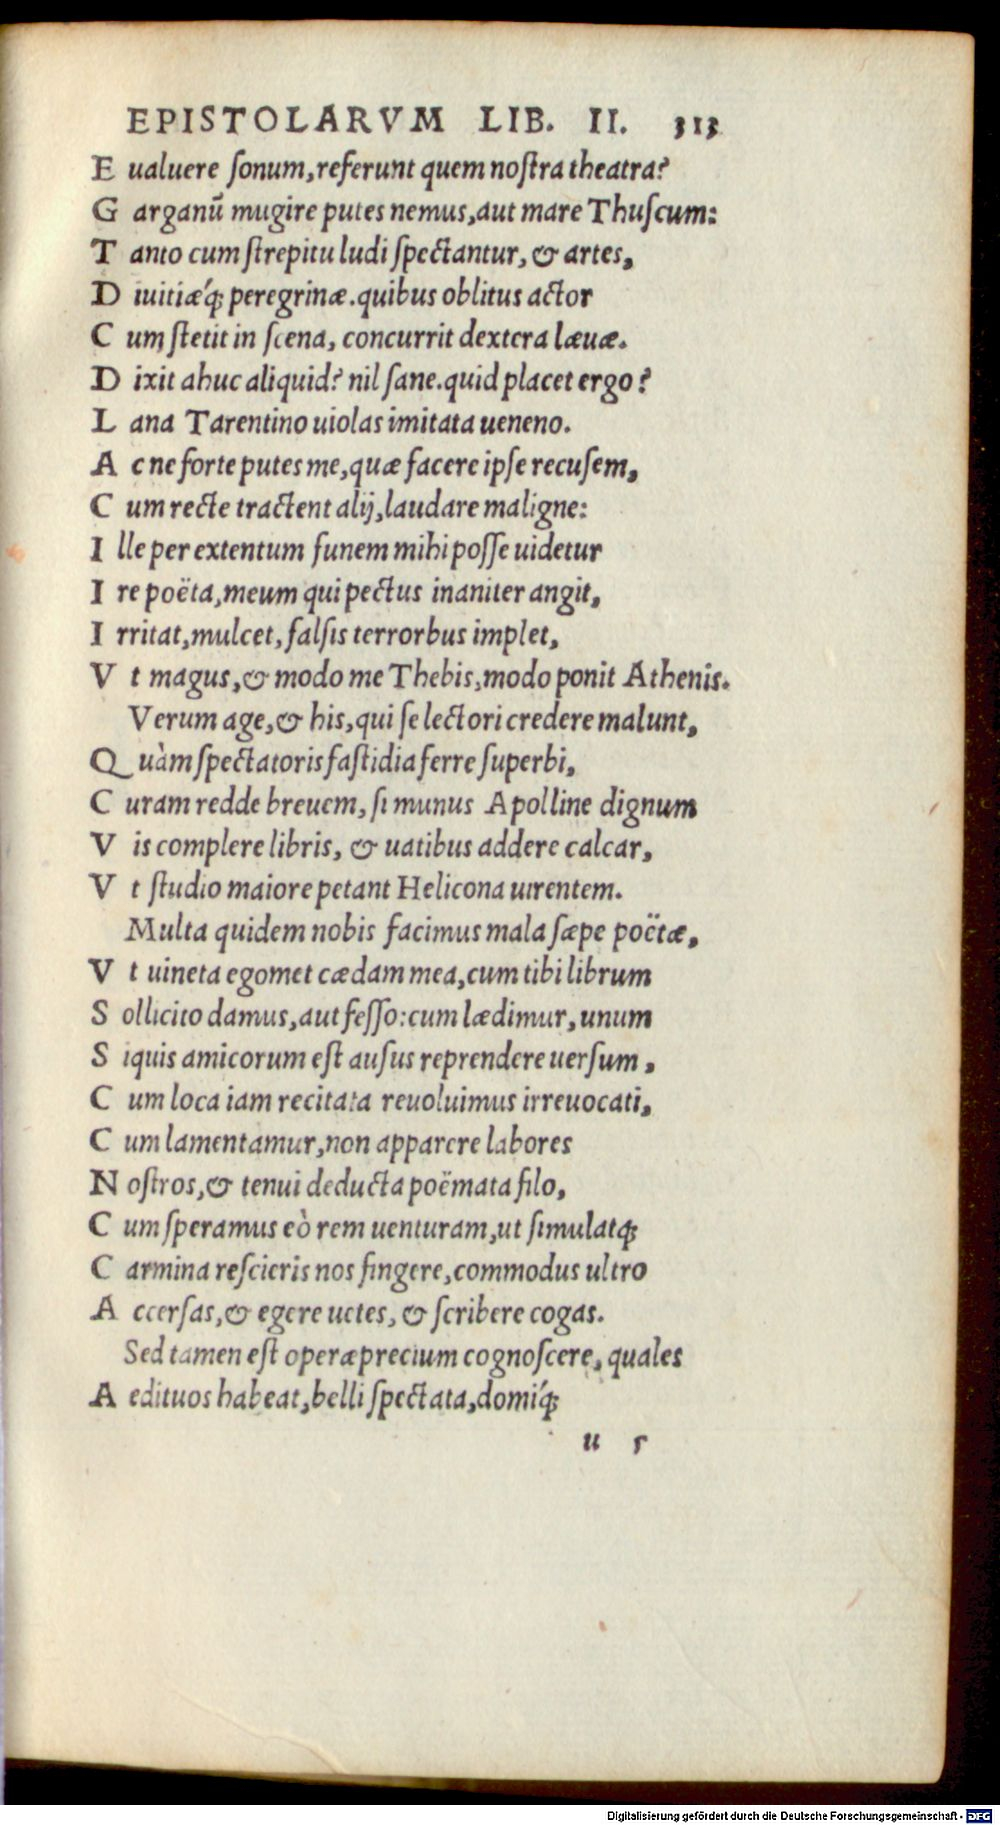 EPISTOLARVM LIB. II. 313
E ualuere ſonum, referunt quem noſtra theatra?
G arganũ mugire putes nemus, aut mare Thuſcum:
T anto cum ſtrepitu ludi ſpectantur, & artes,
D iuitiǽq; peregrinæ. quibus oblitus actor
C um ſtetit in ſcena, concurrit dextera læuæ.
D ixit ahuc aliquid? nil ſane. quid placet ergo?
L ana Tarentino uiolas imitata ueneno.
A c ne forte putes me, quæ facere ipſe recuſem,
C um recte tractent alij, laudare maligne:
I lle per extentum funem mihi poſſe uidetur
I re poëta, meum qui pectus inaniter angit,
I rritat, mulcet, falſis terrorbus implet,
V t magus, & modo me Thebis, modo ponit Athenis.
Verum age, & his, qui ſe lectori credere malunt,
Q uàm ſpectatoris faſtidia ferre ſuperbi,
C uram redde breuem, ſi munus Apolline dignum
V is complere libris, & uatibus addere calcar,
V t ſtudio maiore petant Helicona uirentem.
Multa quidem nobis facimus mala ſæpe poëtæ,
V t uineta egomet cædam mea, cum tibi librum
S ollicito damus, aut feſſo: cum lædimur, unum
S iquis amicorum eſt auſus reprendere uerſum,
C um loca iam recitata reuoluimus irreuocati,
C um lamentamur, non apparere labores
N oſtros, & tenui deducta poëmata filo,
C um ſperamus eò rem uenturam, ut ſimulatq;
C armina reſcieris nos fingere, commodus ultro
A ccerſas, & egere uetes, & ſcribere cogas.
Sed tamen eſt operæprecium cognoſcere, quales
A edituos habeat, belli ſpectata, domíq;
u 5
Digitalisierung gefördert durch die Deutsche Forschungsgemeinschaft - DFG